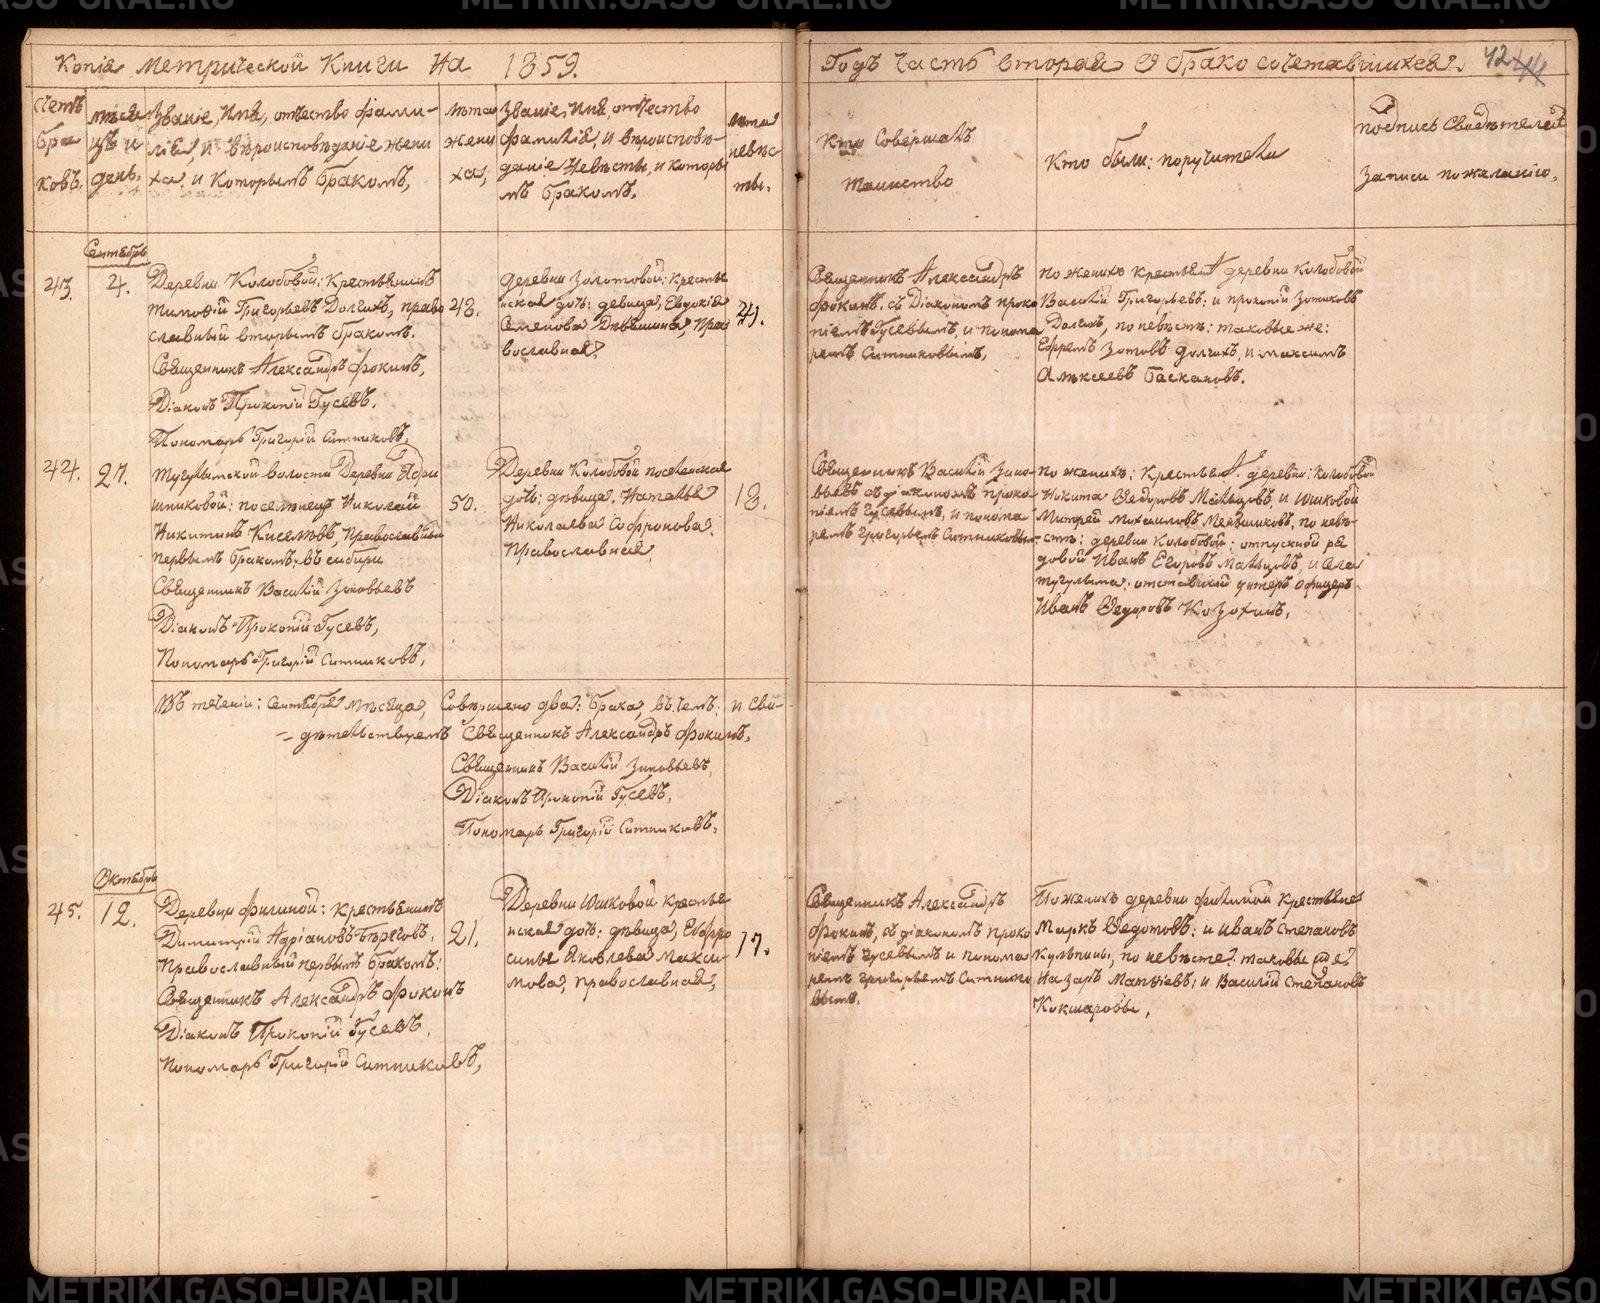 Копія Метрической Книги На 1859.
Годъ Часть вторая О бракосочетавшихся. 42 44
Счетъ браковъ.
Мѣсяцъ и день.
Званіе, Имя, отчество фами-
лія, и вѣроисповѣданіе жени
ха, и Которымъ бракомъ,
Лѣта
жени
ха,
Званіе, Имя, отчество
фамилія, и вѣроисповѣ-
даніе Невѣсты, и которы
мъ бракомъ.
Лѣта
невѣс
ты.
Кто Совершалъ
таинство
Кто были: поручители
подпись Свидѣтелей
Записи по желанію,
Сентябрь
43. 4.
Деревни Колобовой: Крестьянинъ
Тимофей Григорьевъ Долгихъ, право
славный вторымъ бракомъ.
Священникъ Александръ Фокинъ,
Діаконъ Прокопій Гусевъ.
Пономарь Григорій Ситниковъ,
деревни Золотовой: крестья
нская дочь: девица, Евдокія
Семенова Пра
вославная
41.
Священникъ Александръ
Фокинъ, съ Діакономъ Проко
піемъ Гусевымъ, и понома
ремъ Ситниковымъ,
по женихѣ крестьян деревни Колобовой
Василій Григорьевъ: и прокопій Зотиковъ
Долгихъ, по невѣстѣ: таковые же:
Ефремъ Зотовъ Долгихъ, и максимъ
Алексеевъ Баскановъ.
44. 27.
Тугулымской волости Деревни
поселенецъ Николай
Никитинъ Киселевъ Православный
первымъ бракомъ, въ сибири
Священникъ Василій Зиновьевъ
Діаконъ Прокопій Гусевъ,
Пономарь Григорій Ситниковъ,
50.
Деревни Колобовой поселенская
дочь: дѣвица Наталья
Николаева Софронова.
Православная,
18.
Священникъ Василій Зино
вьевъ съ діакономъ проко
піемъ Гусевымъ, и понома
ремъ григорьемъ Ситниковы
по женихѣ: Крестьян деревни: Колобовой
Никита Федоровъ Мальцовъ, и Юшковой
Митрей Михаиловъ Меншиковъ, по невѣ
стѣ: деревни Колобовой: отпускной ря
довой Иванъ Егоровъ Мальцовъ, и Села
тугулыма: отставной унтеръ Офицеръ
Иванъ Федоровъ
Въ теченіи: Сентября мѣсяца, Совершено два: брака, въ чемъ: и Сви-
дѣтельствуемъ Священникъ Александръ Фокинъ,
Священникъ Василій Зиновьевъ,
Діаконъ Прокопій Гусевъ,
Пономарь Григорій Ситниковъ,
Октябрь
45. 12.
Деревни Филиной: крестьянинъ
Димитрій Адріановъ Береговъ,
Православный первымъ бракомъ:
Священникъ Александръ Фокинъ
Діаконъ Прокопій Гусевъ,
пономарь Григорій Ситниковъ,
21.
Деревни Юшковой крестья
нская дочь: дѣвица, Евфро
синья Яковлева Макси-
мова, православная,
17.
Священникъ Александръ
Фокинъ, съ діакономъ Проко
піемъ Гусевымъ и понома
ремъ григорьемъ Ситнико
вымъ.
По женихѣ деревни филиной крестьяне
Маркъ Федотовъ: и иванъ Степановъ
по невѣсте: таковые же
Назаръ Матвіевъ, и Василій Степановъ
Кокшаровы,